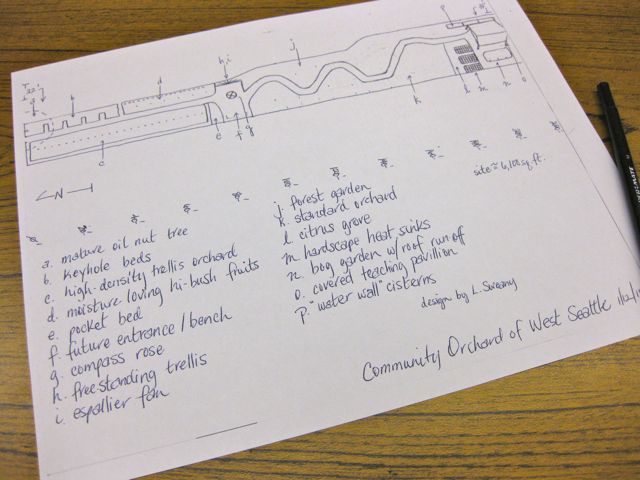 h, i
j
p
b
d
c
e
f
g
k
l
m
n
o
N
site ≈ 6,100 sq. ft.
a. mature oil nut tree
b. keyhole beds
c. high-density trellis orchard
d. moisture loving hi-bush fruits
e. pocket bed
f. future entrance / bench
g. compass rose
h. freestanding trellis
i. espallier fan
j. forest garden
k. standard orchard
l. citrus grove
m. hardscape heat sinks
n. bog garden w/ roof run off
o. covered teaching pavillion
p. "water wall" cisterns
design by L. Sweany
Community Orchard of West Seattle